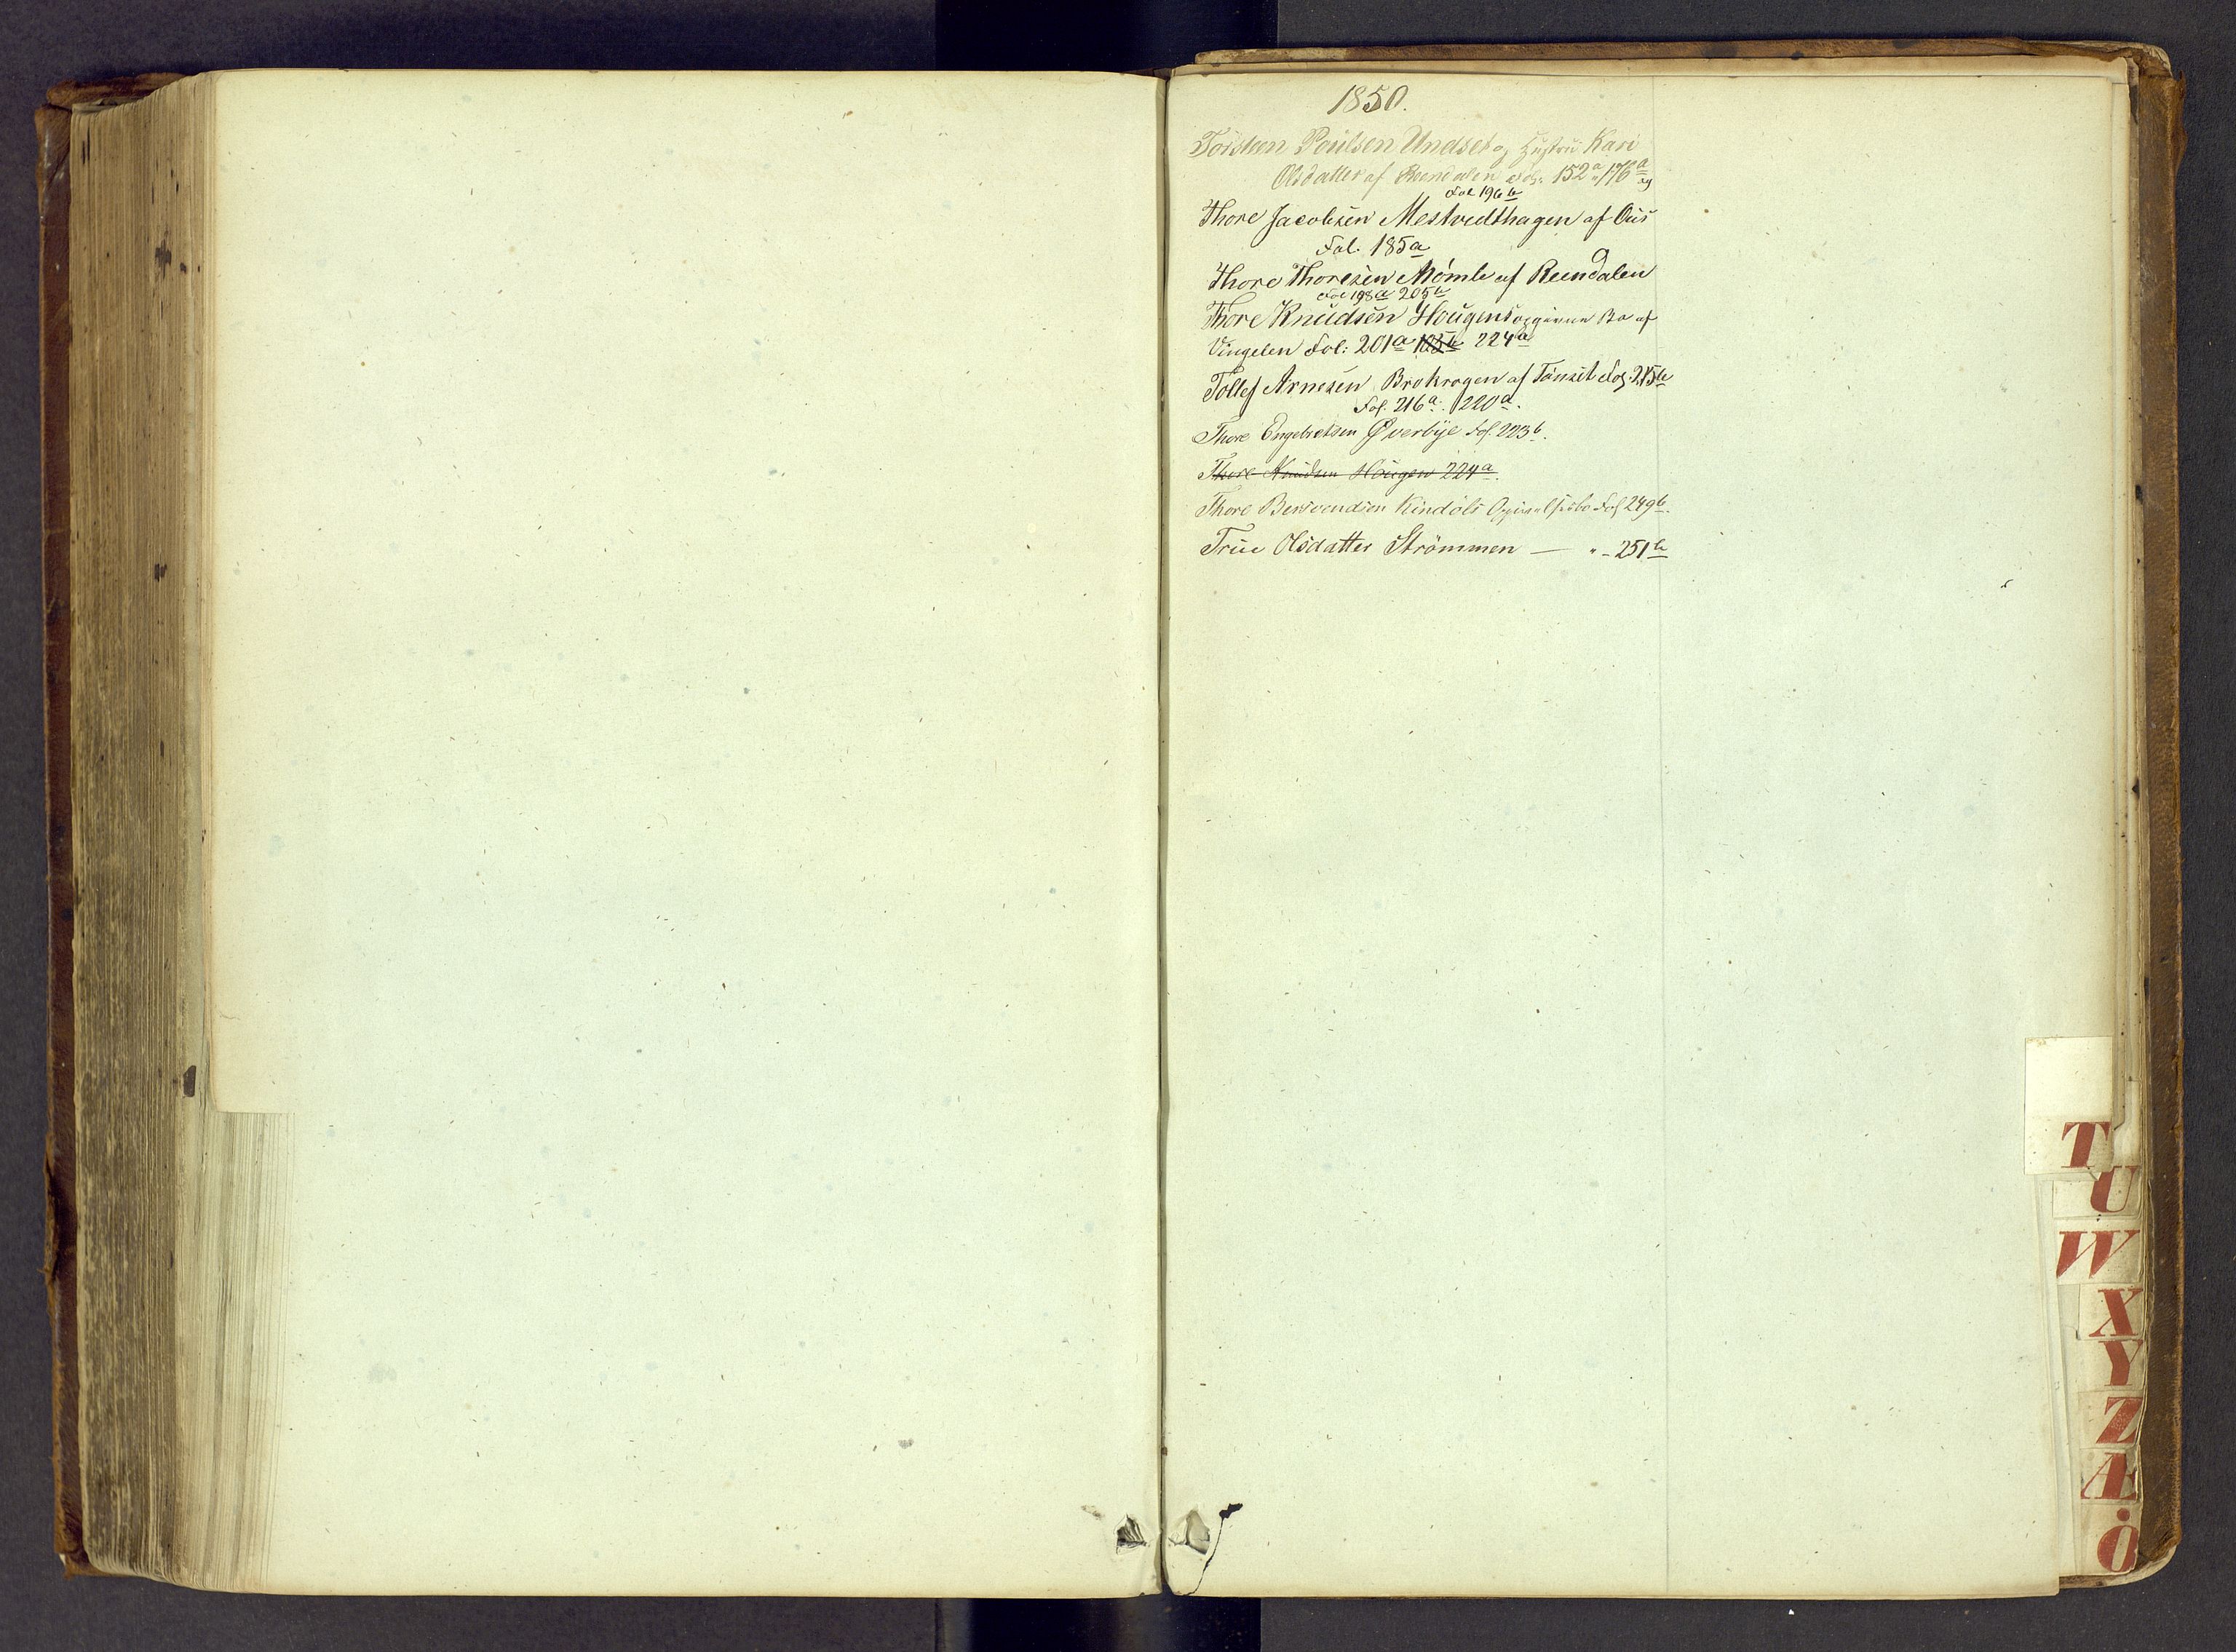 1850.
Torsteen Poulsen Undset og Hustru Kari
Olsdatter af Reendalen Fol: 152a 176a og
Fol 196b
Thore Jacobsen Mestvedthagen af Ous
Fol. 185a
Thore Thoresen Momle af Reendalen
Fol 198a 205b
Thore Knudsen Hougens opgivne Bo af
Vingelen Fol: 201a 224a
Tollef Arnesen Brokrogen af Tønset Fol. 215b
Fol. 216a. 220a.
Thore Engebretsen Øverbye Fol. 223b.
Thore Knudsen Hougen 224a.
Thore Bersvendsen Kindöls Fol 249b.
True Olsdatter Strömmen — " - 251b
T
U
W
X
Y
Z
Æ
Ö